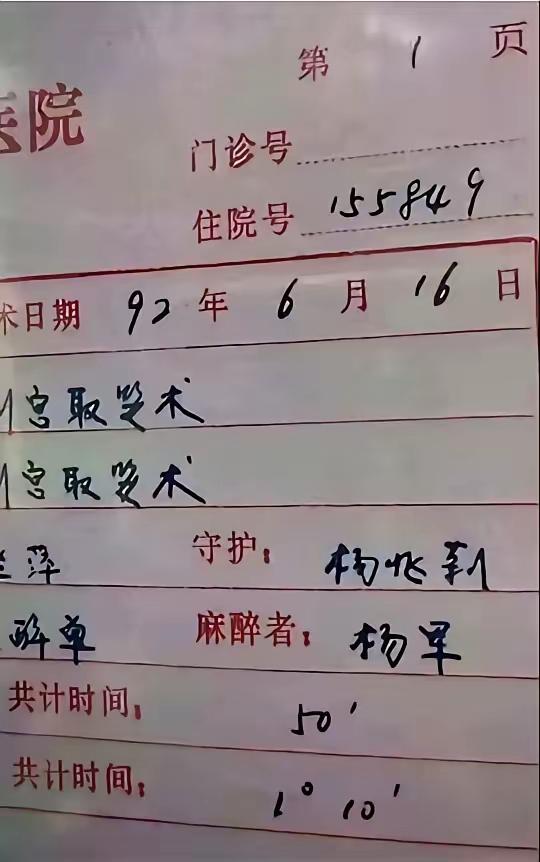 第 1 页
医院
门诊号
住院号 155849
术日期 92 年 6 月 16 日
宫取婴术
宫取婴术
萍 守护: 杨兆莉
醉单 麻醉者: 杨军
共计时间: 50′
共计时间: 1° 10′